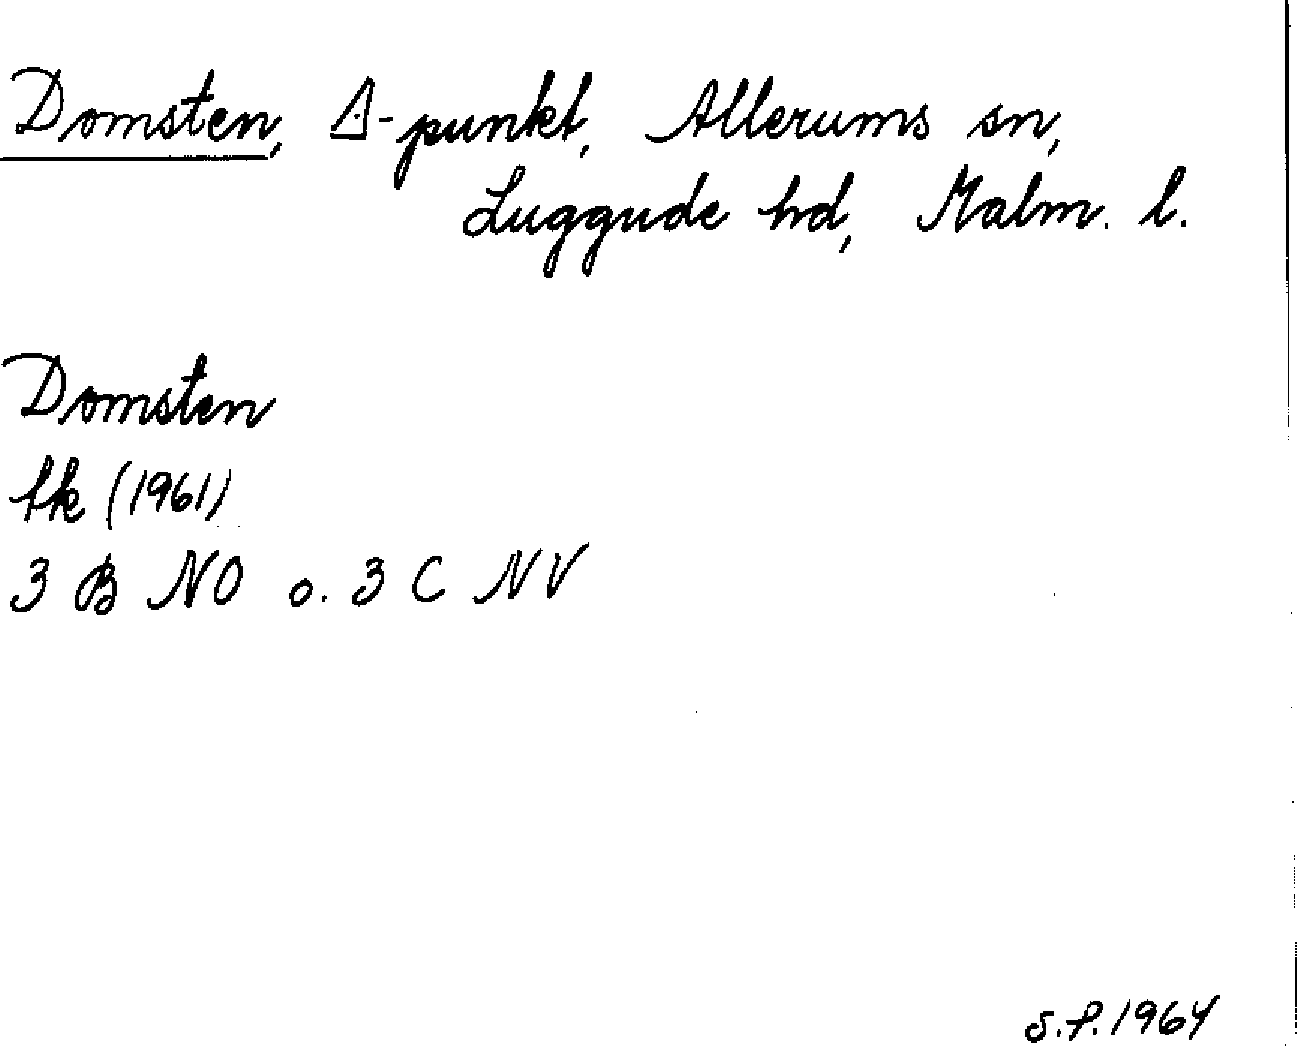 Domsten, Δ-punkt, Allerums sn,
Luggude hd, Malm. l.
Domsten
fk (1961)
3 B NO o. 3 C NV
S.P. 1964